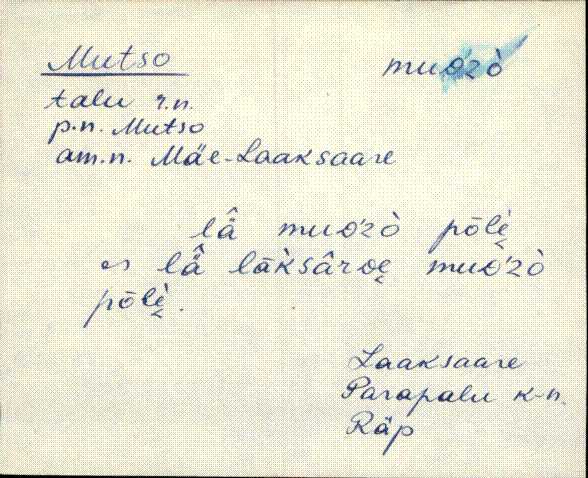 Mutso muo̭zò
talu r.n.
p.n. Mutso
am.n. Mäe-Laaksaare
lä̂ muo̭zò pōlè̬
es lä̂ lāksârɒe̬ muo̭zò
pōlè̬.
Laaksaare
Parapalu k-n.
Räp